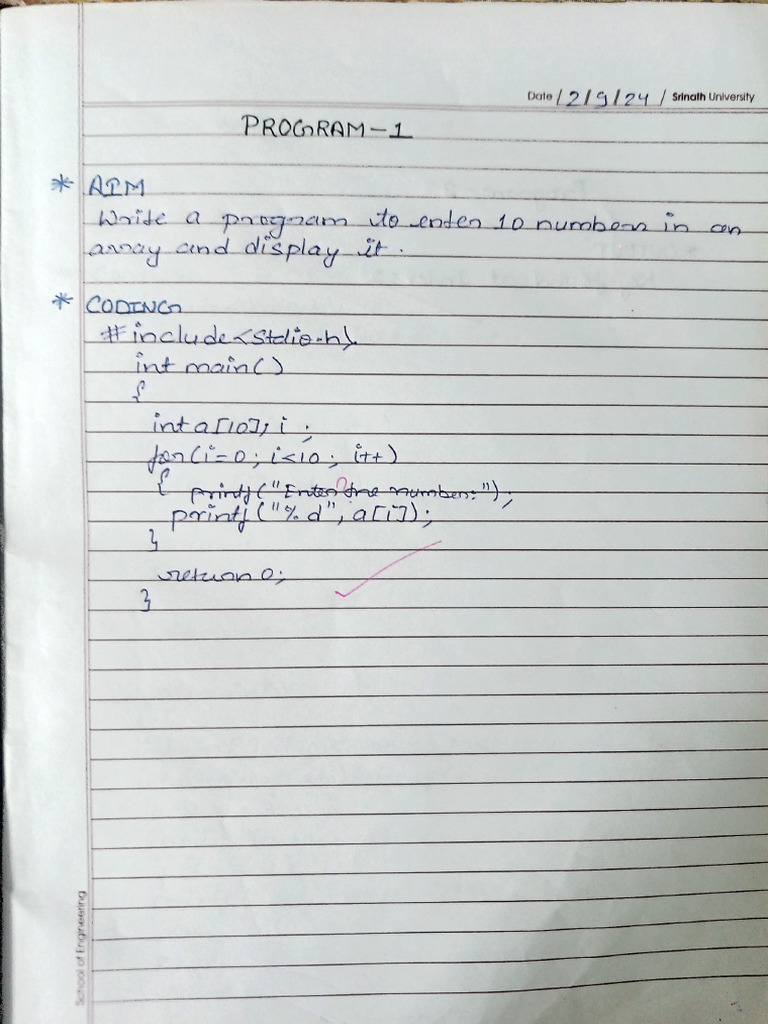 Date / 2/9/24 / Srinath University
PROGRAM-1
* AIM
Write a program to enter 10 numbers in an
array and display it.
* CODING
#include<stdio.h>
int main()
{
int a[10], i ;
for(i=0; i<10; i++)
{ printf("Enter the number:");
printf("%d", a[i]);
}
return 0;
}
School of Engineering